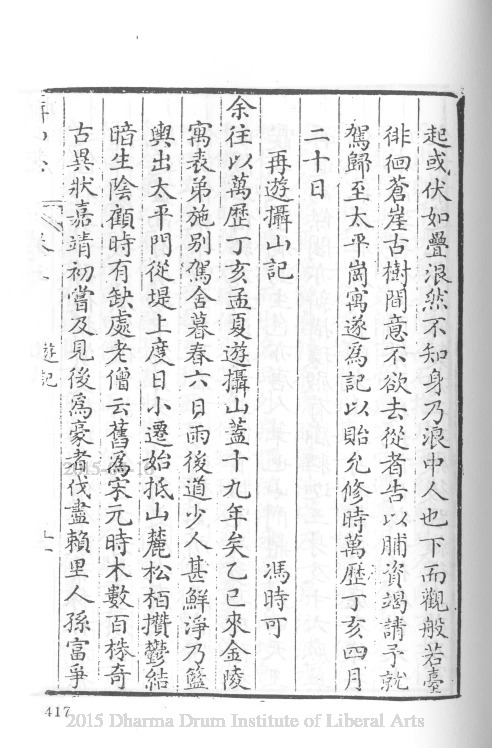 起或伏如疊浪然不知身乃浪中人也下而觀般若臺
徘徊蒼崖古樹間意不欲去從者告以脯資竭請予就
駕歸至太平崗寓遂爲記以貽允修時萬歷丁亥四月
二十日
再遊攝山記
馮時可
余往以萬歷丁亥孟夏遊攝山蓋十九年矣乙巳來金陵
寓表弟施别駕舍暮春六日雨後道少人甚鮮淨乃籃
輿出太平門從堤上度日小遷始抵山麓松栢攢鬱結
暗生陰顧時有缺處老僧云舊爲宋元時木數百株奇
古異狀嘉靖初嘗及見後爲豪者伐盡賴里人孫富爭
遊記
417
2015 Dharma Drum Institute of Liberal Arts